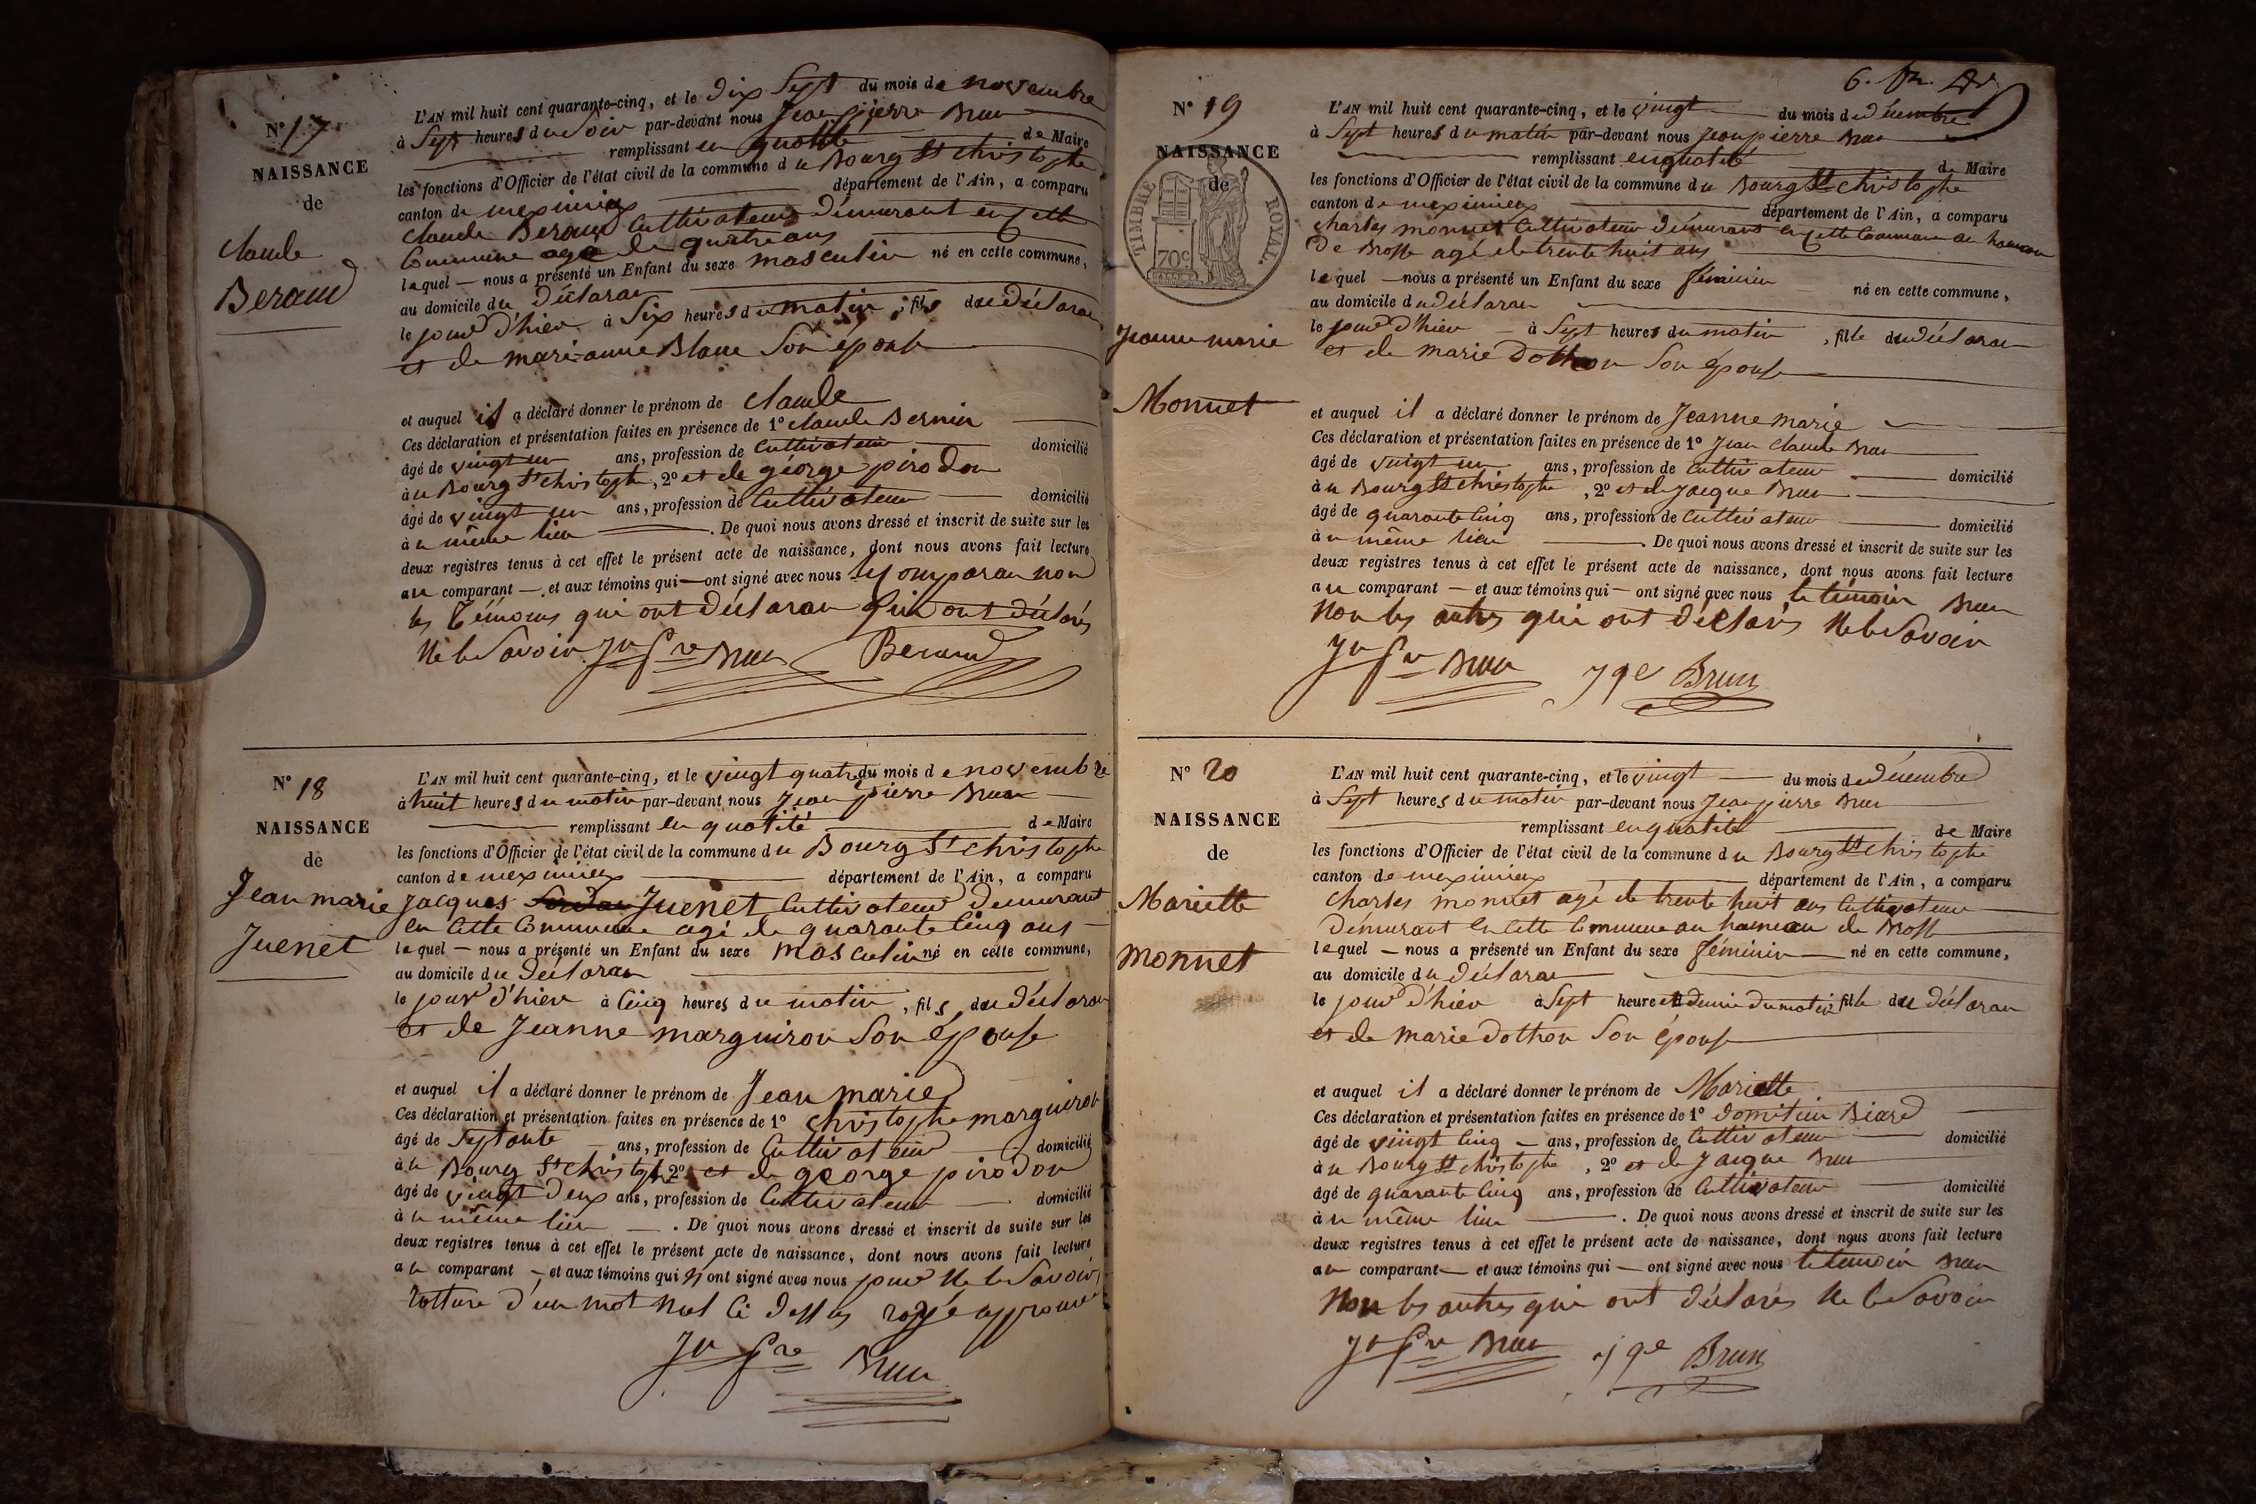 N° 17
NAISSANCE
de
Claude
Beraud
L'AN mil huit cent quarante-cinq, et le dix Sept du mois de novembre
à Sept heures du Soir par-devant nous Jean pierre Brun
remplissant en qualité de Maire
les fonctions d'Officier de l'état civil de la commune du Bourg St christophe
canton de meximieux département de l'Ain, a comparu
Claude Beraud Cultivateur démurant en cette
Commune agé de quatre ans
lequel — nous a présenté un Enfant du sexe masculin né en cette commune,
au domicile du déclaran
le jour d'hier à Six heures du matin, fils du déclaran
et de marianne Blanc Son épouse
et auquel il a déclaré donner le prénom de Claude
Ces déclaration et présentation faites en présence de 1° Claude Bernin
âgé de vingt un ans, profession de Cultivateur domicilié
à u Bourg St christophe, 2° et de géorge pirodon
âgé de vingt un ans, profession de Cultivateur domicilié
à u même lieu . De quoi nous avons dressé et inscrit de suite sur les
deux registres tenus à cet effet le présent acte de naissance, dont nous avons fait lecture
au comparant — et aux témoins qui — ont signé avec nous le Comparan non
les Témoins qui ont déclaran qui ont déclarés
Ne le Savoir Jn Pre Brun Beraud
N° 18
NAISSANCE
de
Jean marie
Juenet
L'AN mil huit cent quarante-cinq, et le vingt quatre du mois de novembre
à huit heures du matin par-devant nous Jean pierre Brun
remplissant en qualité de Maire
les fonctions d'Officier de l'état civil de la commune du Bourg St christophe
canton de meximieux département de l'Ain, a comparu
Jacques Juenet Cultivateur demurant
en Cette Commune agé de quarante Cinq ans
lequel — nous a présenté un Enfant du sexe masculin né en cette commune,
au domicile du déclaran
le jour d'hier à Cinq heures du matin, fils du déclaran
et de Jeanne marguiron Son épouse
et auquel il a déclaré donner le prénom de Jean marie
Ces déclaration et présentation faites en présence de 1° Christophe marguiron
âgé de Septante ans, profession de Cultivateur domicilié
à u Bourg St christophe 2° et de george pirodon
âgé de vingt deux ans, profession de Cultivateur domicilié
à u même lieu — . De quoi nous avons dressé et inscrit de suite sur les
deux registres tenus à cet effet le présent acte de naissance, dont nous avons fait lecture
au comparant — et aux témoins qui n'ont signé avec nous pour Ne le Savoir,
rotture d'un mot Nul Ci dessus rayé approuvé
Jn Pre Brun
6.
N° 19
NAISSANCE
de
TIMBRE ROYAL
70c
Jeanne marie
Monnet
L'AN mil huit cent quarante-cinq, et le vingt du mois de décembre
à Sept heures du matin par-devant nous Jean pierre Brun
remplissant en qualité de Maire
les fonctions d'Officier de l'état civil de la commune du Bourg St christophe
canton de meximieux département de l'Ain, a comparu
Charles monnet Cultivateur démurant en Cette Commune au hameau
de Brosse agé de trente huit ans
lequel — nous a présenté un Enfant du sexe féminin né en cette commune,
au domicile du déclaran
le jour d'hier — à Sept heures du matin, fille du déclaran
et de marie dothon Son épouse
et auquel il a déclaré donner le prénom de Jeanne marie
Ces déclaration et présentation faites en présence de 1° Jean Claude Brun
âgé de vuigt un ans, profession de Cultivateur domicilié
à u Bourg St christophe, 2° et de Jacque Brun
âgé de quarante Cinq ans, profession de Cultivateur domicilié
à u même lieu . De quoi nous avons dressé et inscrit de suite sur les
deux registres tenus à cet effet le présent acte de naissance, dont nous avons fait lecture
au comparant — et aux témoins qui — ont signé avec nous le témoin Brun
Non les autres qui ont déclarés Ne le Savoir
Jn Pre Brun Jqe Brun
N° 20
NAISSANCE
de
Mariette
Monnet
L'AN mil huit cent quarante-cinq, et le vingt — du mois de décembre
à Sept heures du matin par-devant nous Jean pierre Brun
remplissant en qualité de Maire
les fonctions d'Officier de l'état civil de la commune du Bourg St christophe
canton de meximieux département de l'Ain, a comparu
Charles monnet agé de trente huit ans Cultivateur
démurant en Cette Commune au hameau de Brosse
lequel — nous a présenté un Enfant du sexe féminin — né en cette commune,
au domicile du déclaran
le jour d'hier à Sept heure et demie du matin fille du déclaran
et de marie dothon Son épouse
et auquel il a déclaré donner le prénom de Mariette
Ces déclaration et présentation faites en présence de 1° domitien Biard
âgé de vingt Cinq — ans, profession de Cultivateur domicilié
à u Bourg St christophe, 2° et de Jacque Brun
âgé de quarante Cinq ans, profession de Cultivateur domicilié
à u même lieu . De quoi nous avons dressé et inscrit de suite sur les
deux registres tenus à cet effet le présent acte de naissance, dont nous avons fait lecture
au comparant — et aux témoins qui — ont signé avec nous le témoin Brun
Non les autres qui ont déclarés Ne le Savoir
Jn Pre Brun Jqe Brun